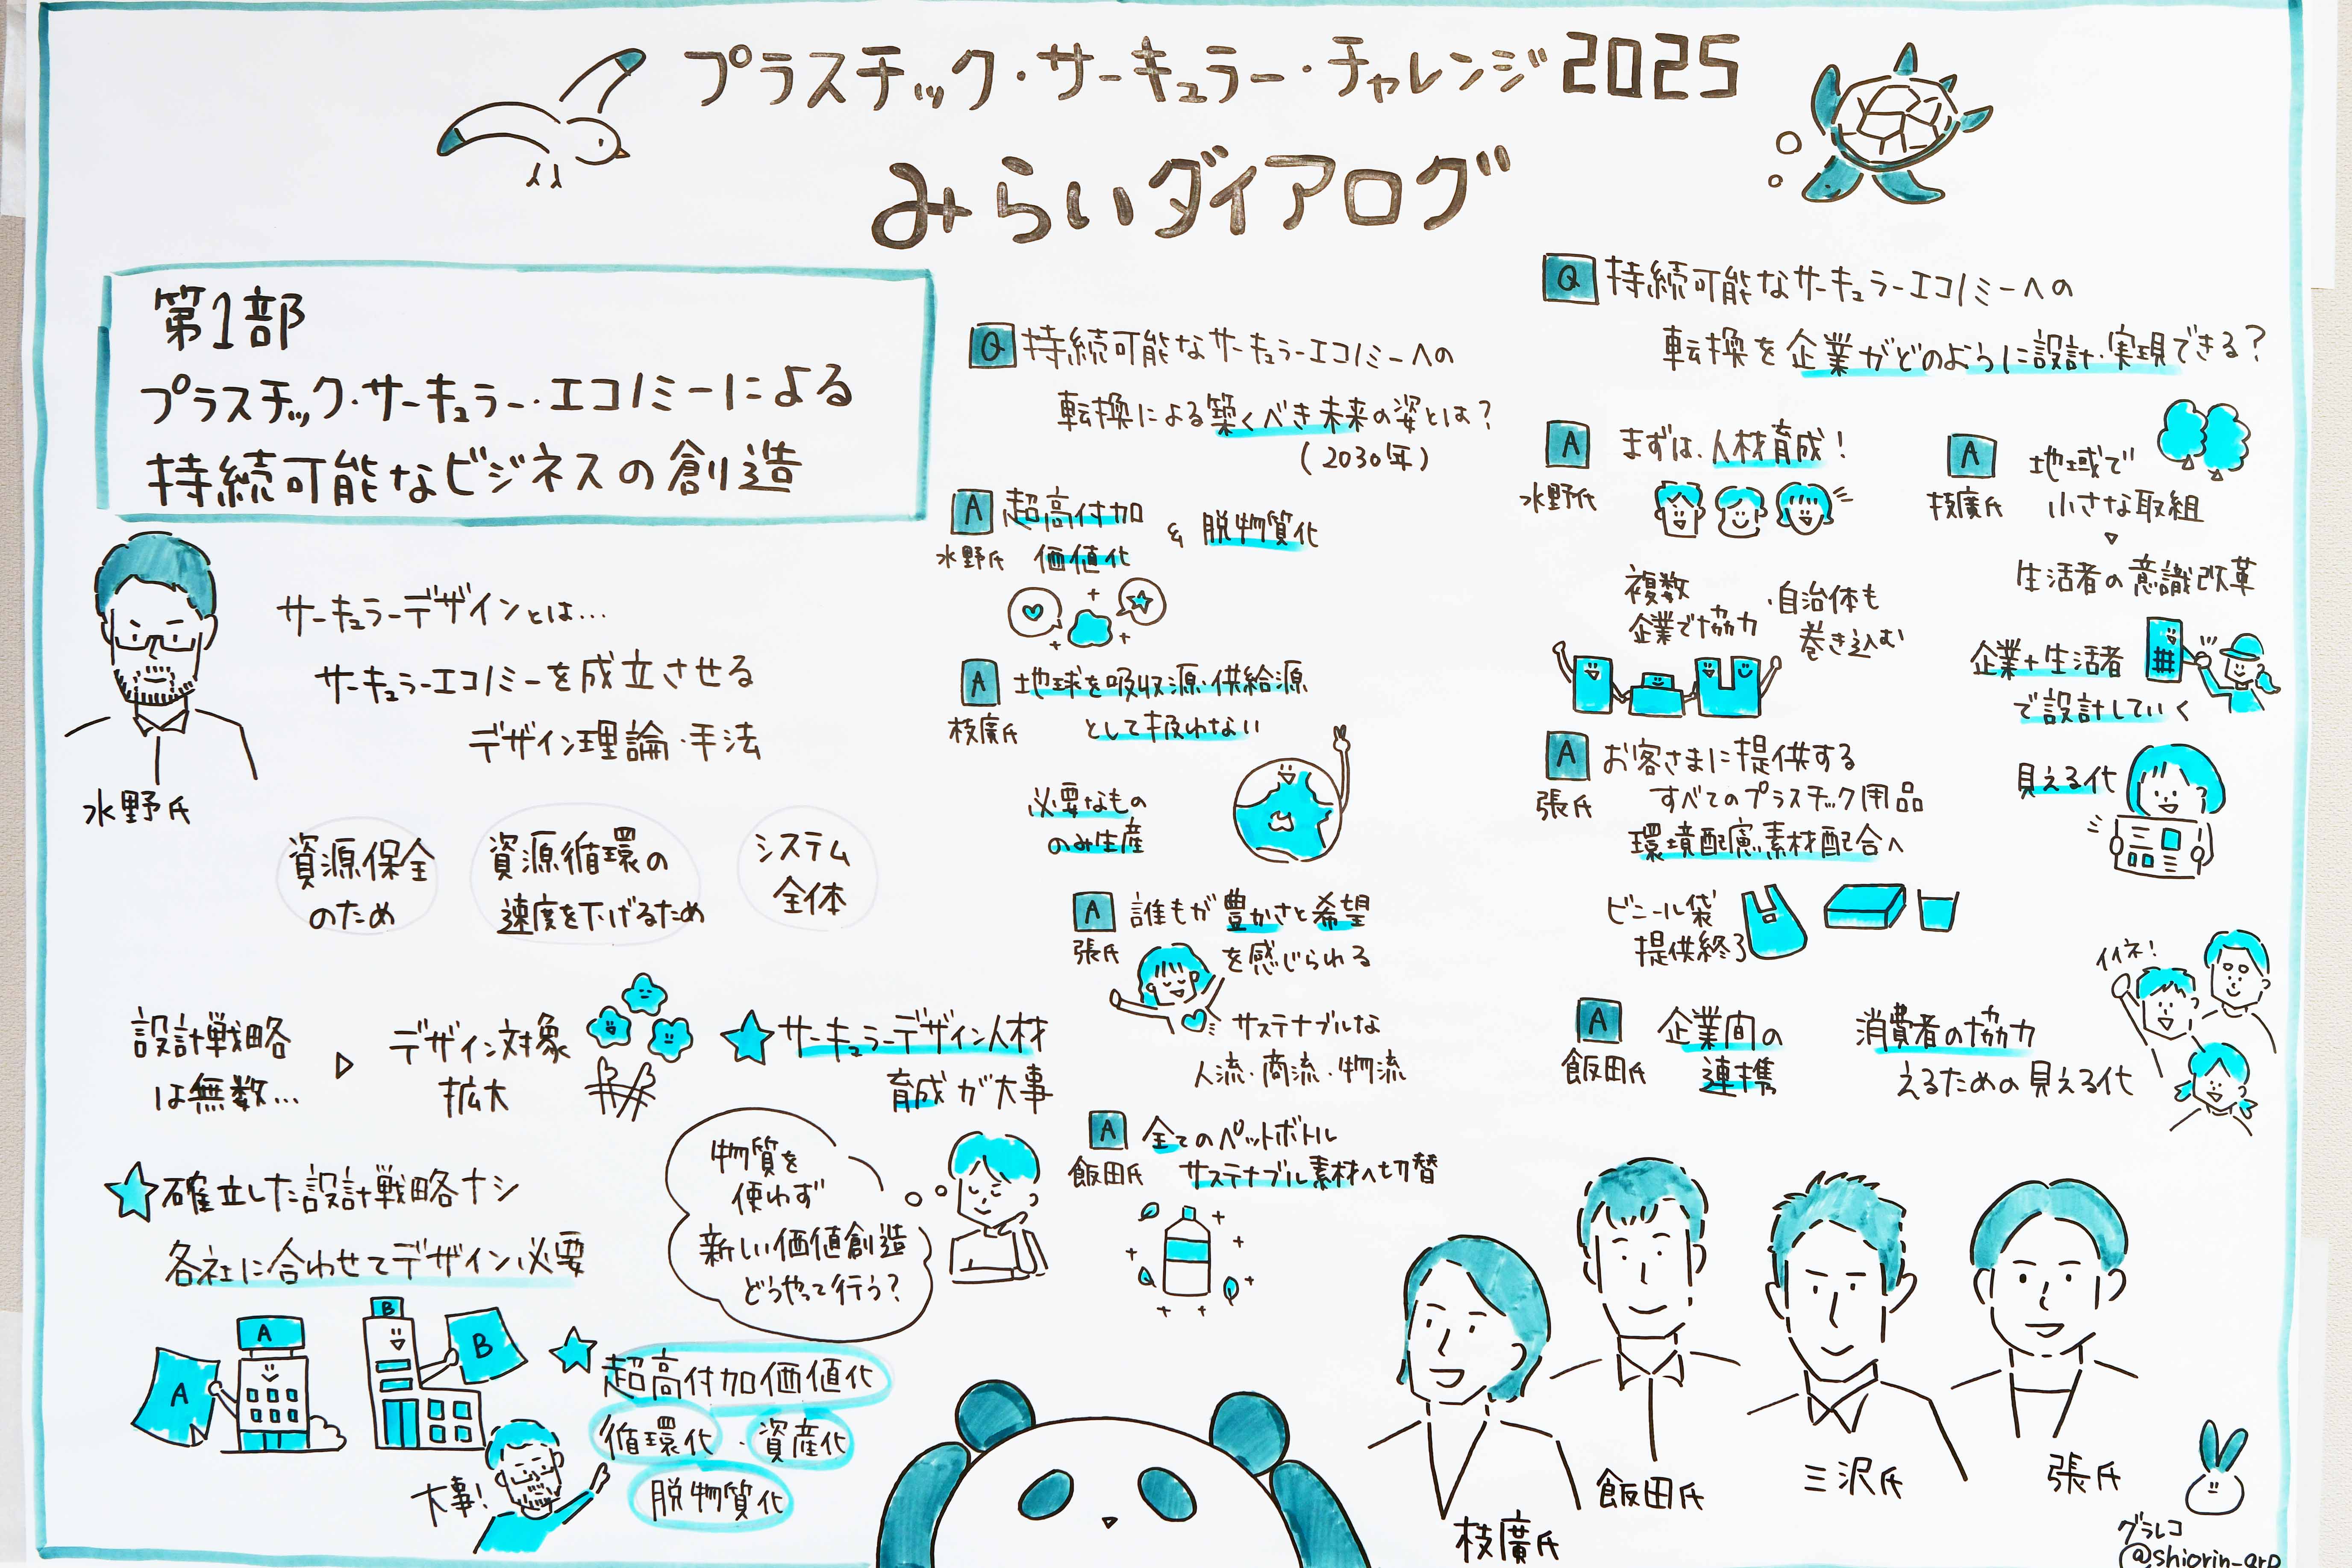 プラスチック・サーキュラー・チャレンジ2025
みらいダイアログ
第1部
プラスチック・サーキュラー・エコノミーによる
持続可能なビジネスの創造
水野氏
サーキュラーデザインとは…
サーキュラーエコノミーを成立させる
デザイン理論・手法
資源保全
のため
資源循環の
速度を下げるため
システム
全体
設計戦略
は無数…
▷
デザイン対象
拡大
サーキュラーデザイン人材
育成が大事
確立した設計戦略ナシ
各社に合わせてデザイン必要
A
A
B
B
物質を
使わず
新しい価値創造
どうやって行う?
大事!
超高付加価値化
循環化・資産化
脱物質化
Q 持続可能なサーキュラーエコノミーへの
転換による築くべき未来の姿とは?
(2030年)
A 超高付加
価値化
& 脱物質化
水野氏
A 地球を吸収源・供給源
として扱わない
枝廣氏
必要なもの
のみ生産
A 誰もが豊かさと希望
を感じられる
張氏
サステナブルな
人流・商流・物流
A 全てのペットボトル
サステナブル素材へ切替
飯田氏
Q 持続可能なサーキュラーエコノミーへの
転換を企業がどのように設計・実現できる?
A まずは、人材育成!
水野氏
複数
企業で協力
・自治体も
巻き込む
A 地域で
小さな取組
枝廣氏
▽
生活者の意識改革
企業+生活者
で設計していく
見える化
A お客さまに提供する
すべてのプラスチック用品
環境配慮素材配合へ
張氏
ビニール袋
提供終了
A 企業間の
連携
飯田氏
消費者の協力
えるための見える化
イイネ!
枝廣氏
飯田氏
三沢氏
張氏
グラレコ
@shiorin_arp